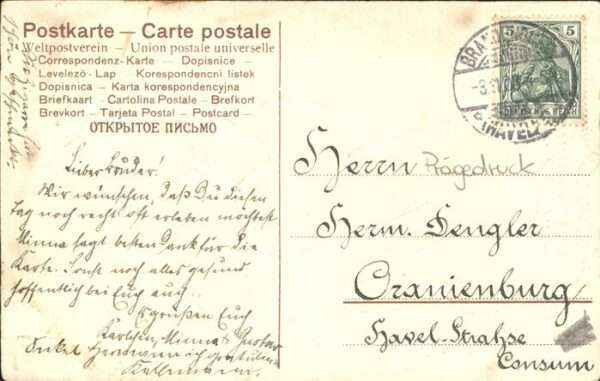 Postkarte — Carte postale
Weltpostverein — Union postale universelle
Correspondenz-Karte — Dopisnice -
Levelező-Lap — Korespondencni listek
Dopisnica — Karta korespondencyjna
Briefkaart — Cartolina Postale — Brefkort
Brevkort — Tarjeta Postal — Postcard —
ОТКРЫТОЕ ПИСЬМО
5 5
DEUTSCHES REICH
BRAND
(HAVEL)
Lieber Bruder!
Wir wünschen, daß Du diesen
Tag noch recht oft erleben möchtest
Minna sagt besten Dank für die
Karte. Sonst noch alles gesund
hoffentlich bei Euch auch.
Es grüßen Euch
Karlchen, Minna, Gustav
Onkel Hermann
Herrn Prägedruck
Herm. Dengler
Oranienburg
Havel-Straße
Consum